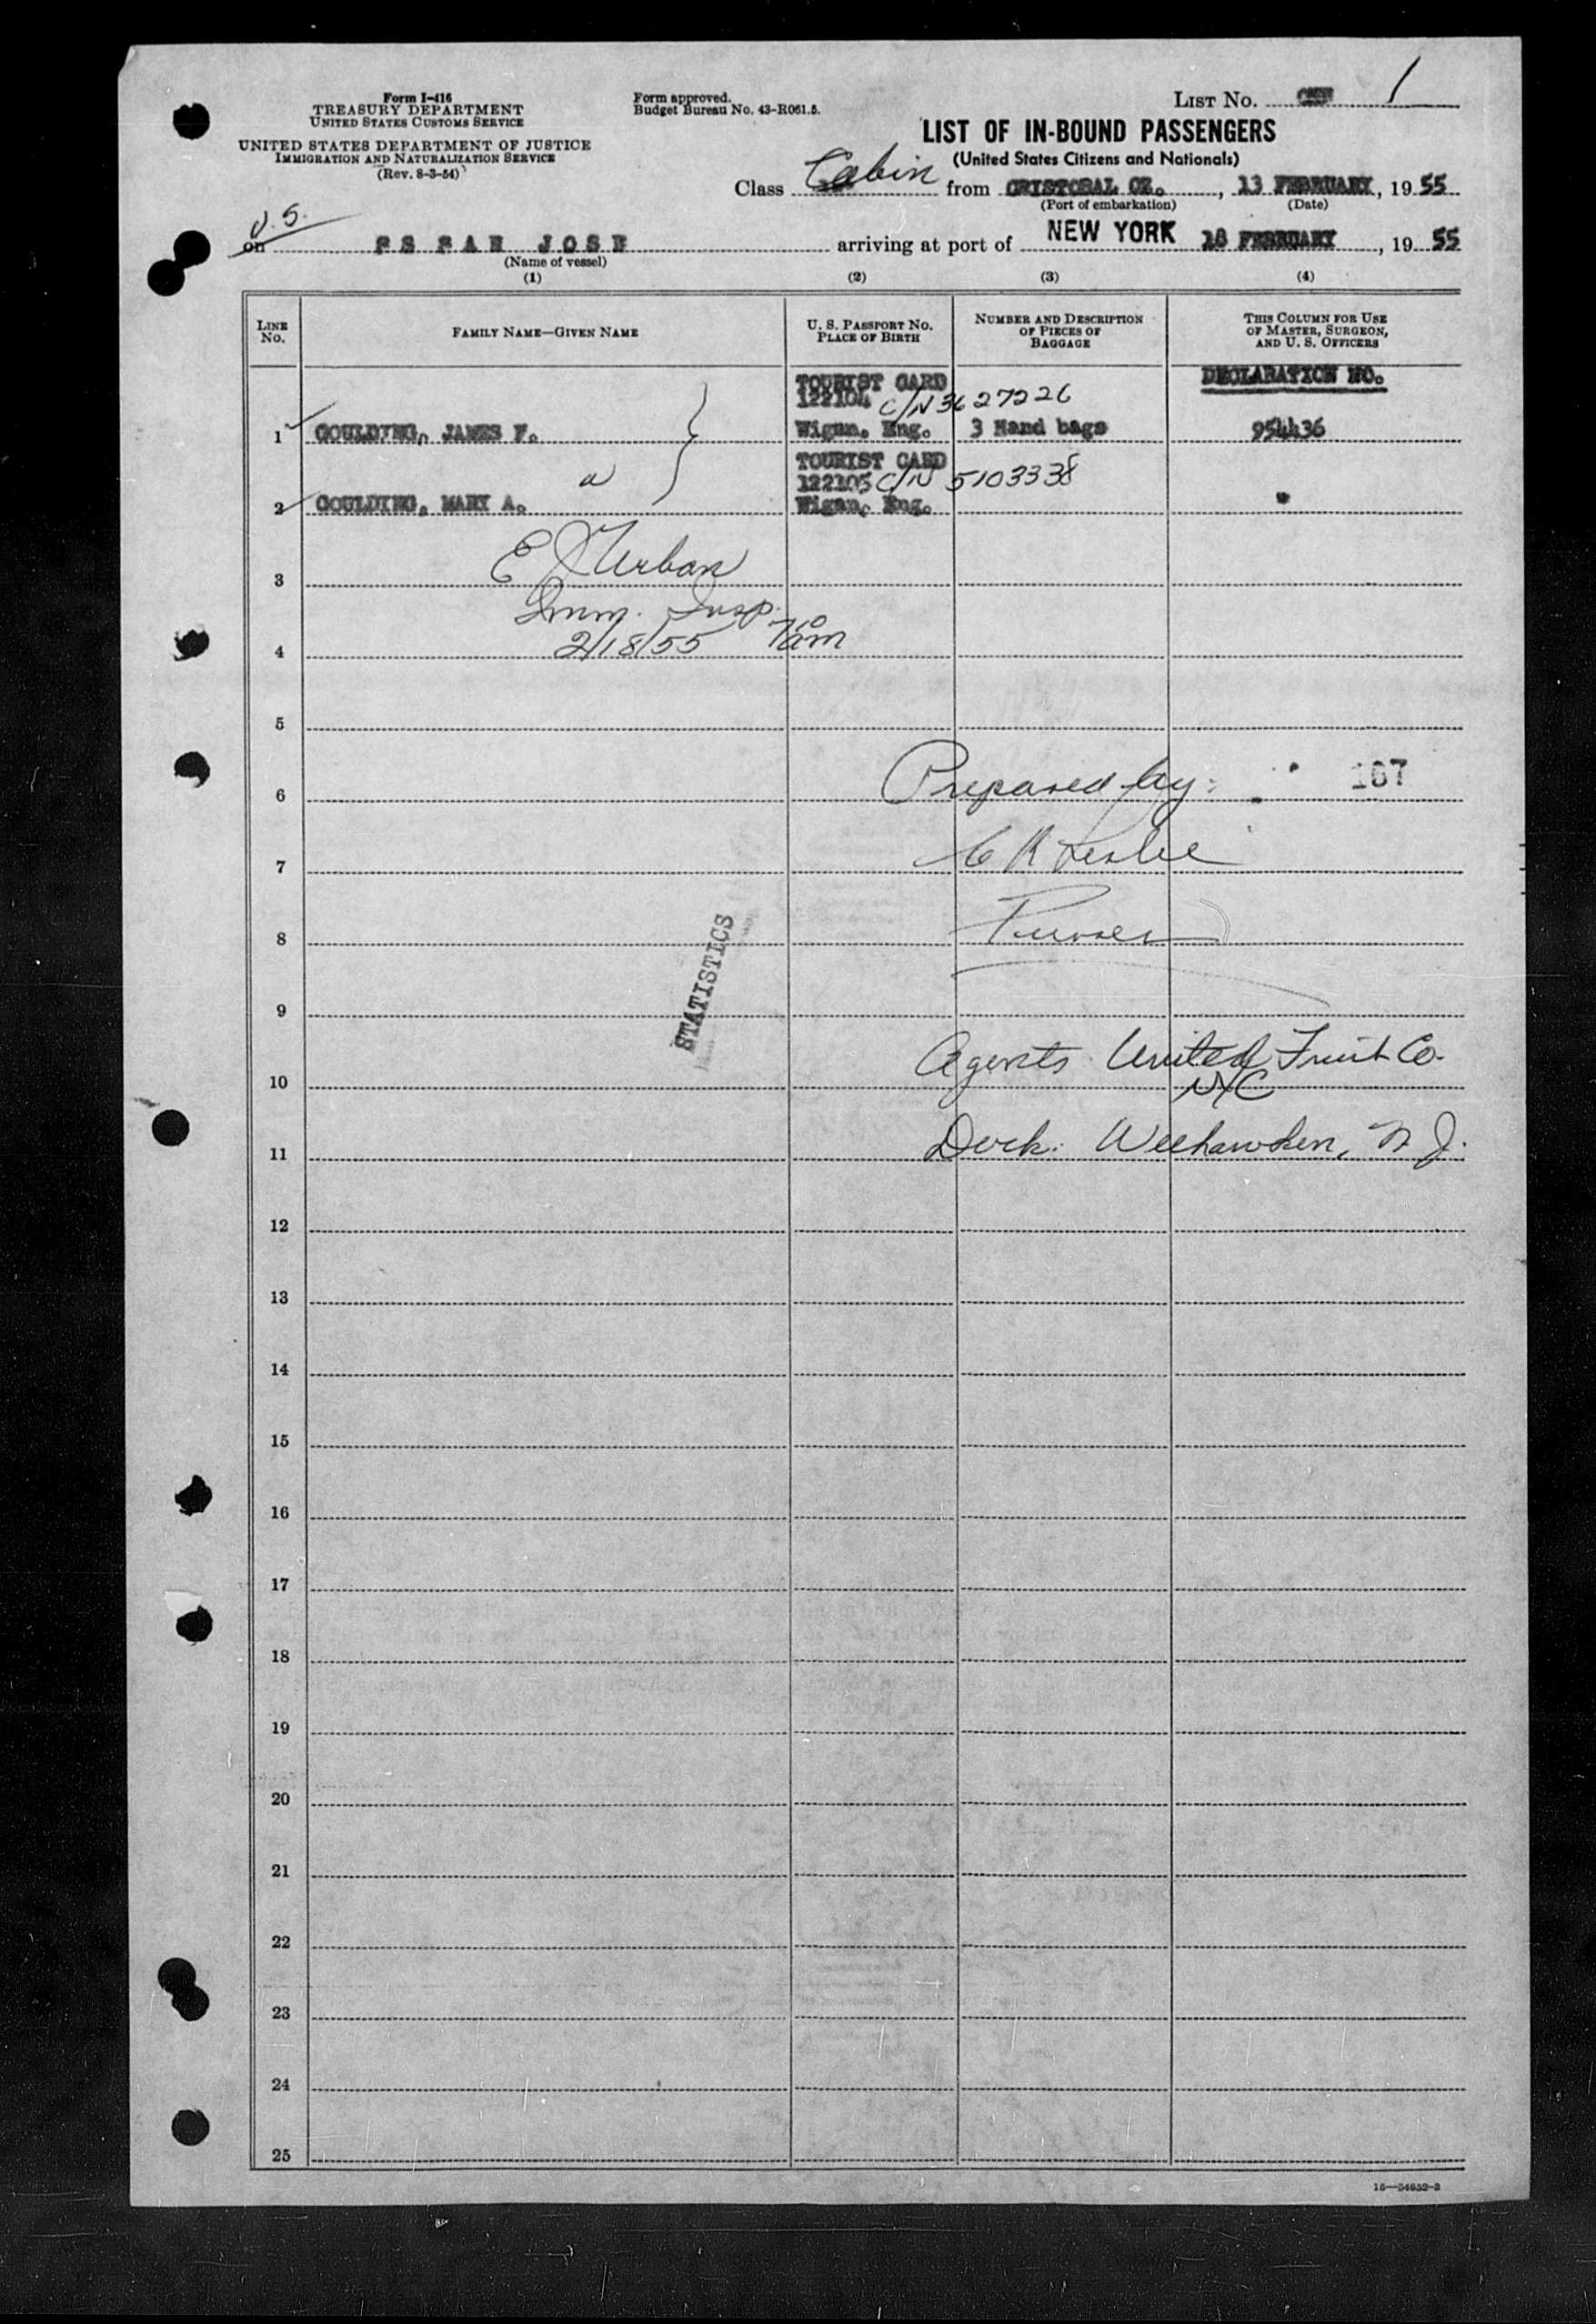 Form I-416
TREASURY DEPARTMENT
UNITED STATES CUSTOMS SERVICE
UNITED STATES DEPARTMENT OF JUSTICE
IMMIGRATION AND NATURALIZATION SERVICE
(Rev. 8-3-54)
Form approved.
Budget Bureau No. 43-R061.5.
LIST NO. 1
LIST OF IN-BOUND PASSENGERS
(United States Citizens and Nationals)
Class Cabin from CRISTOBAL CZ., 13 FEBRUARY, 1955
(Port of embarkation) (Date)
U.S.
on SS SAN JOSE arriving at port of NEW YORK 18 FEBRUARY, 1955
(Name of vessel)
(1) (2) (3) (4)
LINE NO. FAMILY NAME—GIVEN NAME U. S. PASSPORT NO. PLACE OF BIRTH NUMBER AND DESCRIPTION OF PIECES OF BAGGAGE THIS COLUMN FOR USE OF MASTER, SURGEON, AND U. S. OFFICERS
DECLARATION NO.
TOURIST CARD
122104 C/N 3627226
1 GOULDING, JAMES F. Wigan. Eng. 3 Hand bags 954436
TOURIST CARD
122105 C/N 5103338
2 GOULDING, MARY A. Wigan, Eng. "
E J Urban
3
Imm. Insp.
4 2/18/55 7:10 am
5
6 Prepared by: 167
7 C R Leslie
8 Purser
STATISTICS
9
Agents United Fruit Co.
10 NYC
11 Dock: Weehawken, N.J.
12
13
14
15
16
17
18
19
20
21
22
23
24
25
16—54852-3